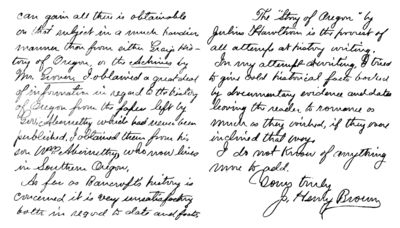 can gain all there is obtainable
on that subject in a much handier
manner than from either Gray's His-
tory of Oregon, or the
Mr. I obtained a great deal
of information in regard to the history
of Oregon from the papers left by
Gov. Abernethy which had never been
published, I obtained them from his
son Wm Abernethy, who now lives
in Southern Oregon.
As far as Bancroft's history is
concerned it is very unsatisfactory
both in regard to date and facts
The "Story of Oregon" by
Julian Hawthorn is the poorest of
all attempts at history writing.
In my attempt at writing I tried
to give cold historical facts backed
by documentary evidence and dates
leaving the reader to romance as
much as they wished, if they were
inclined that way.
I do not know of anything
more to add.
Yours truly
J. Henry Brown